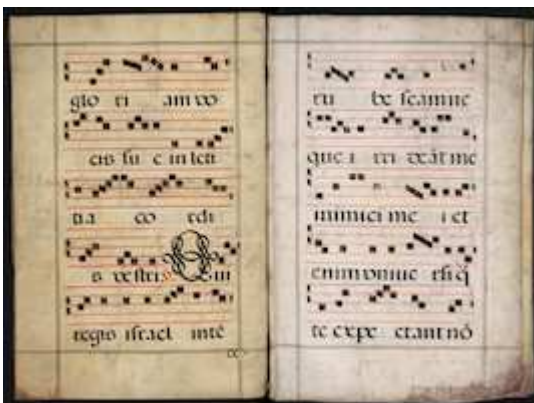 glo ri am vo
cis su e in leti
tia co rdi
is vestri. Qui
regis israel intē
ru be scam ne
que i rri deāt me
inimici me i et
enim vniue rsi q̄
te expe ctant nō